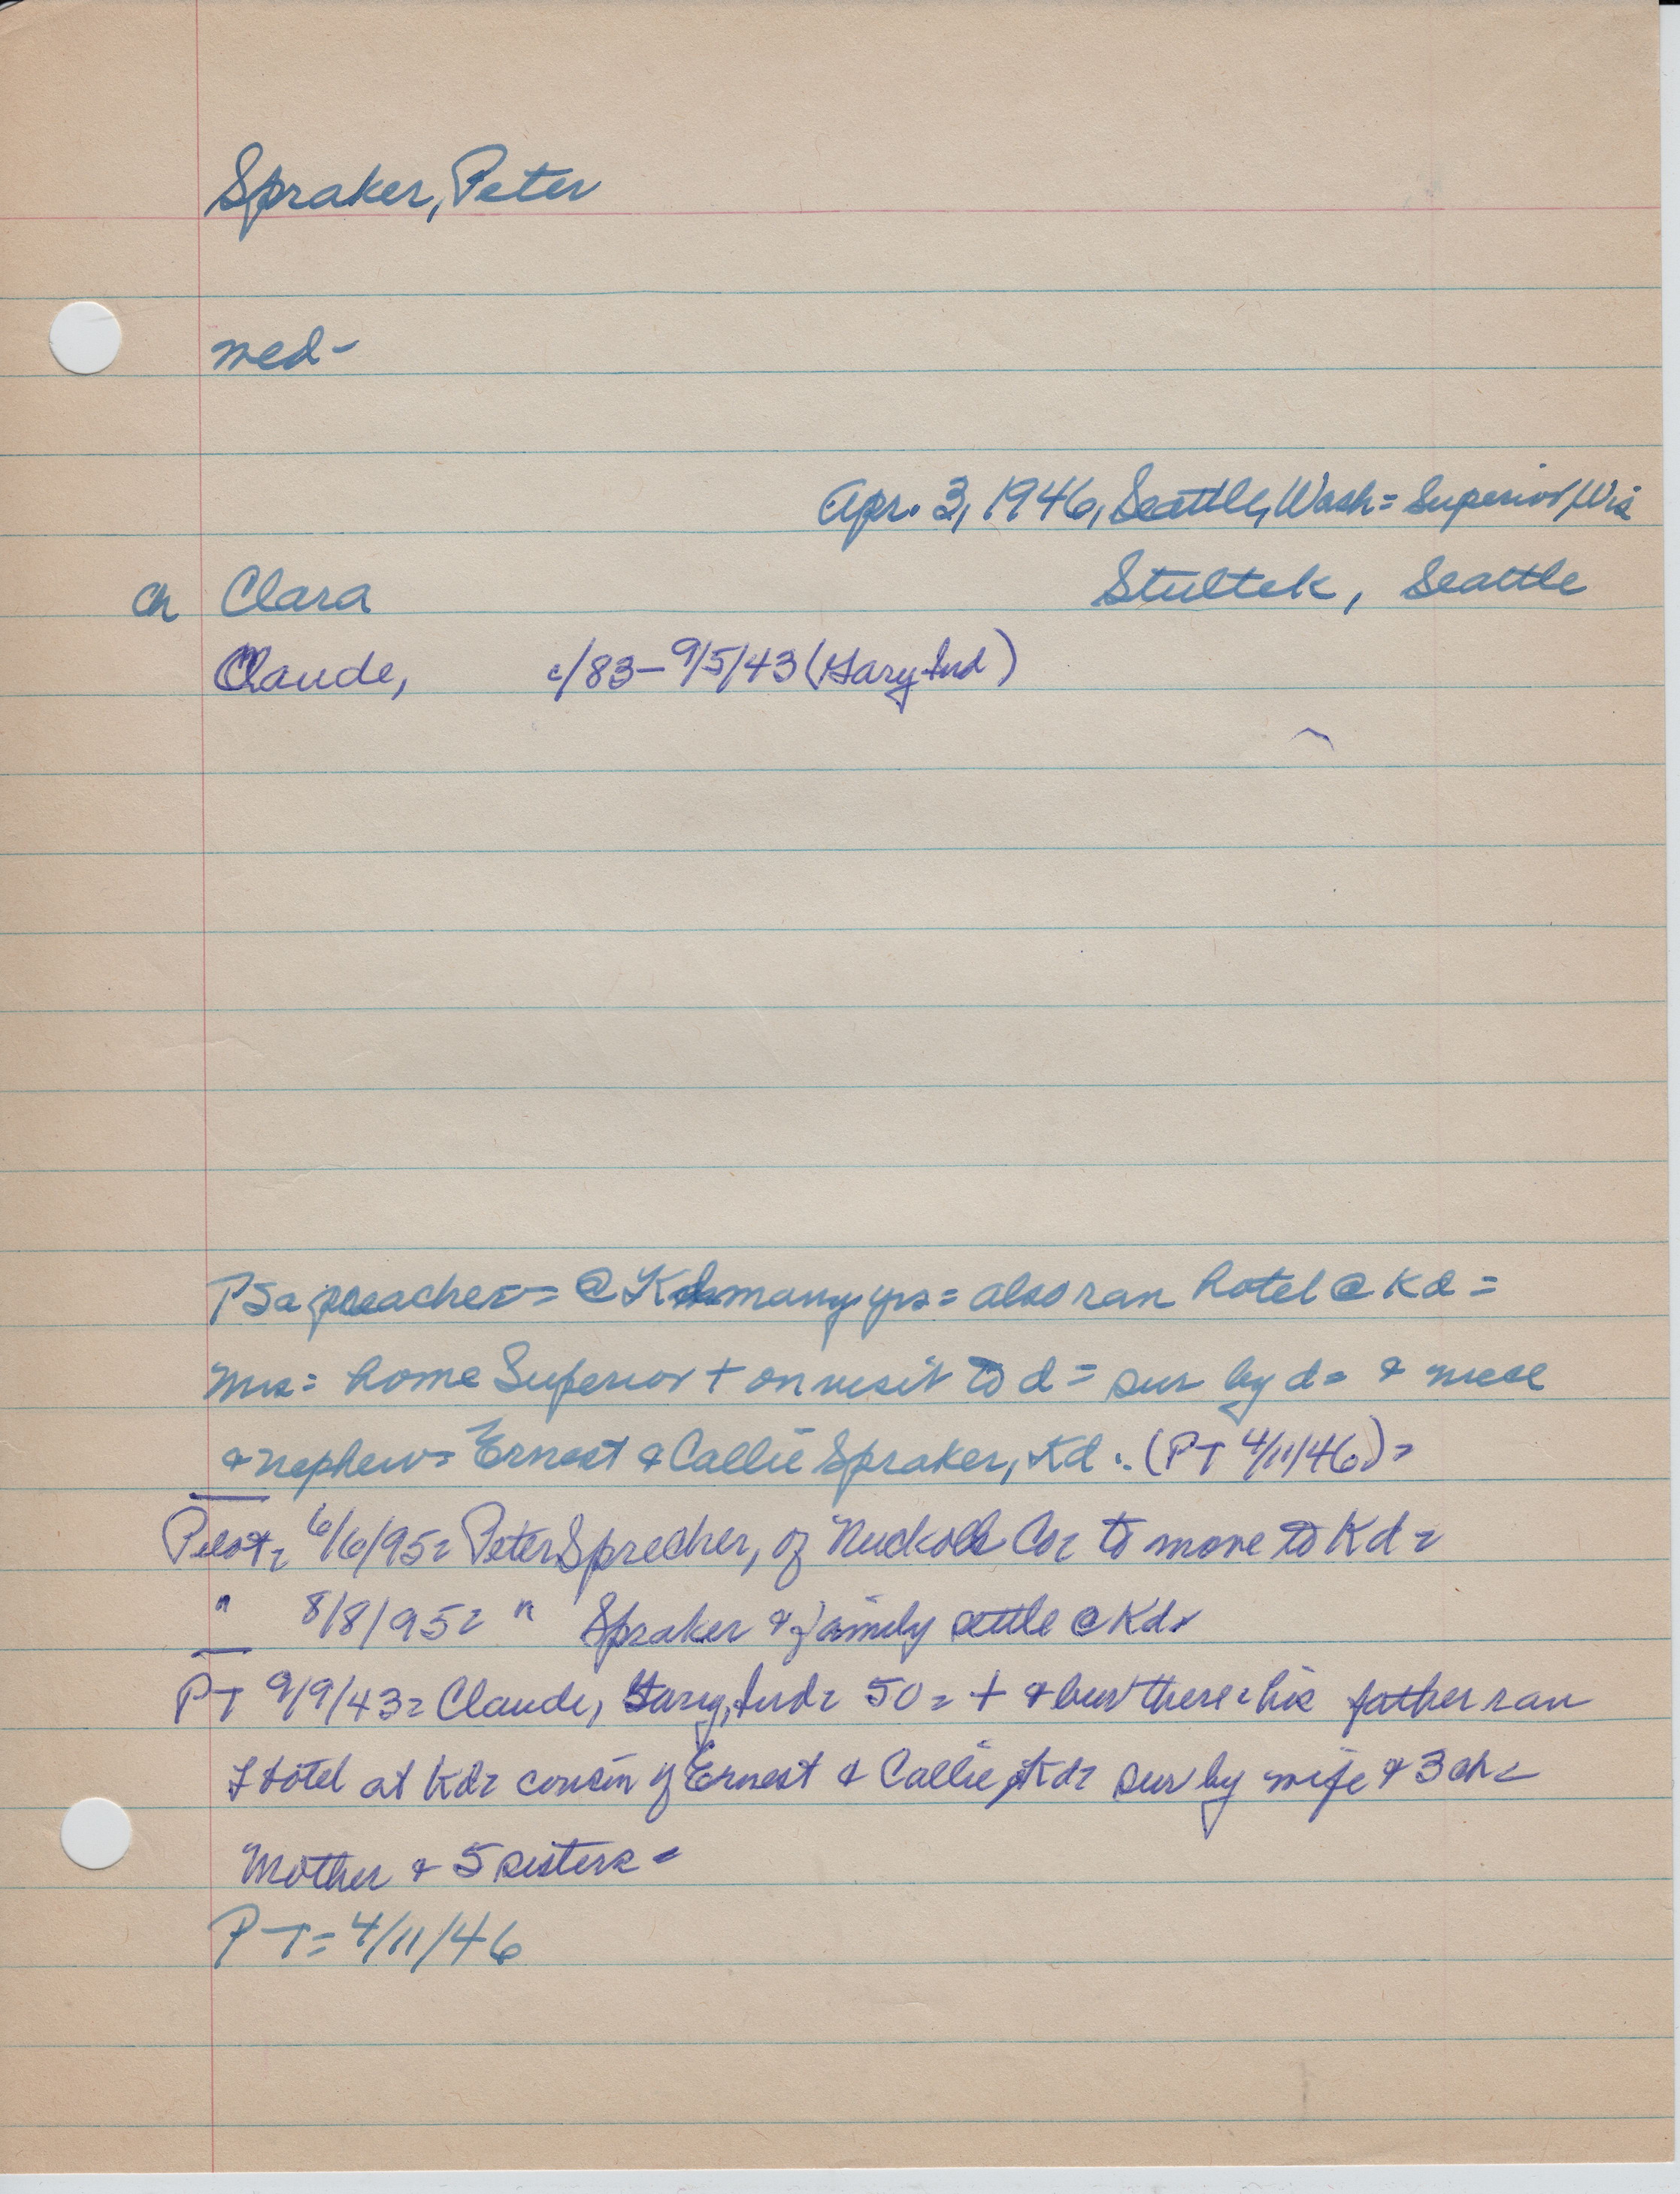 Spraker, Peter
med-
Apr. 3, 1946, Seattle, Wash = Superior, Wis
ch Clara Stultek, Seattle
Claude, c/83 - 9/5/43 (Gary Ind)
PS a preacher = @ Kd many yrs = also ran hotel @ Kd =
Mrs = home Superior + on visit to d = sur by d = & niece
& nephew = Ernest & Callie Spraker, Kd. (PT 4/11/46) =
Pilot = 6/6/95 = Peter Sprecher, of Nuckolls Co = to move to Kd =
" 8/8/95 = " Spraker & family settle @ Kd =
PT 9/9/43 = Claude, Gary, Ind = 50 = + & bur there = his father ran
Hotel at Kd = cousin of Ernest & Callie, Kd = sur by wife & 3 ch =
Mother & 5 sisters =
PT = 4/11/46